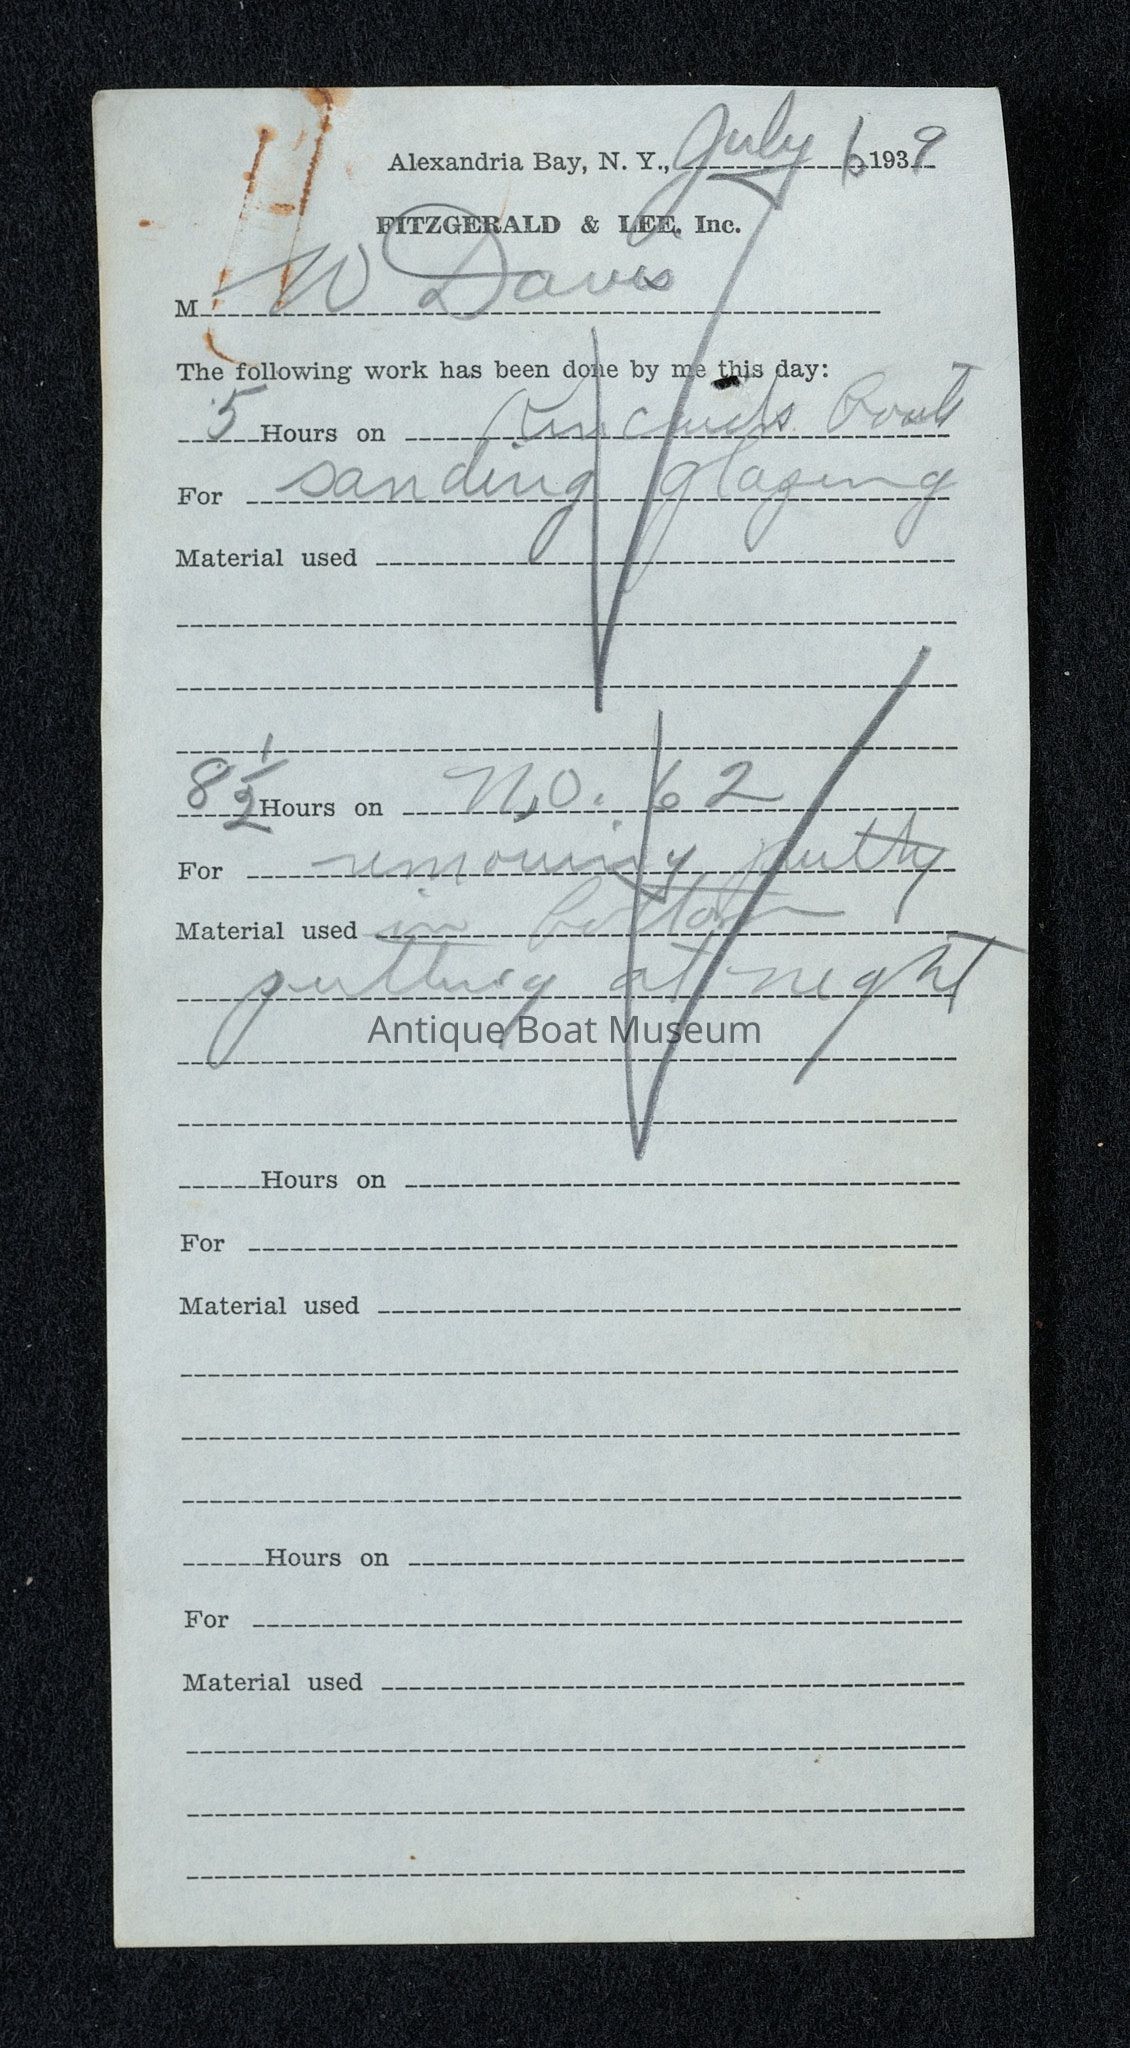 Alexandria Bay, N. Y., July 6 1939
FITZGERALD & LEE, Inc.
M W Davis
The following work has been done by me this day:
5 Hours on Kincaids boat
For sanding glazing
Material used
8 1/2 Hours on No. 62
For removing putty
Material used in bottom
putting at night
Antique Boat Museum
Hours on
For
Material used
Hours on
For
Material used